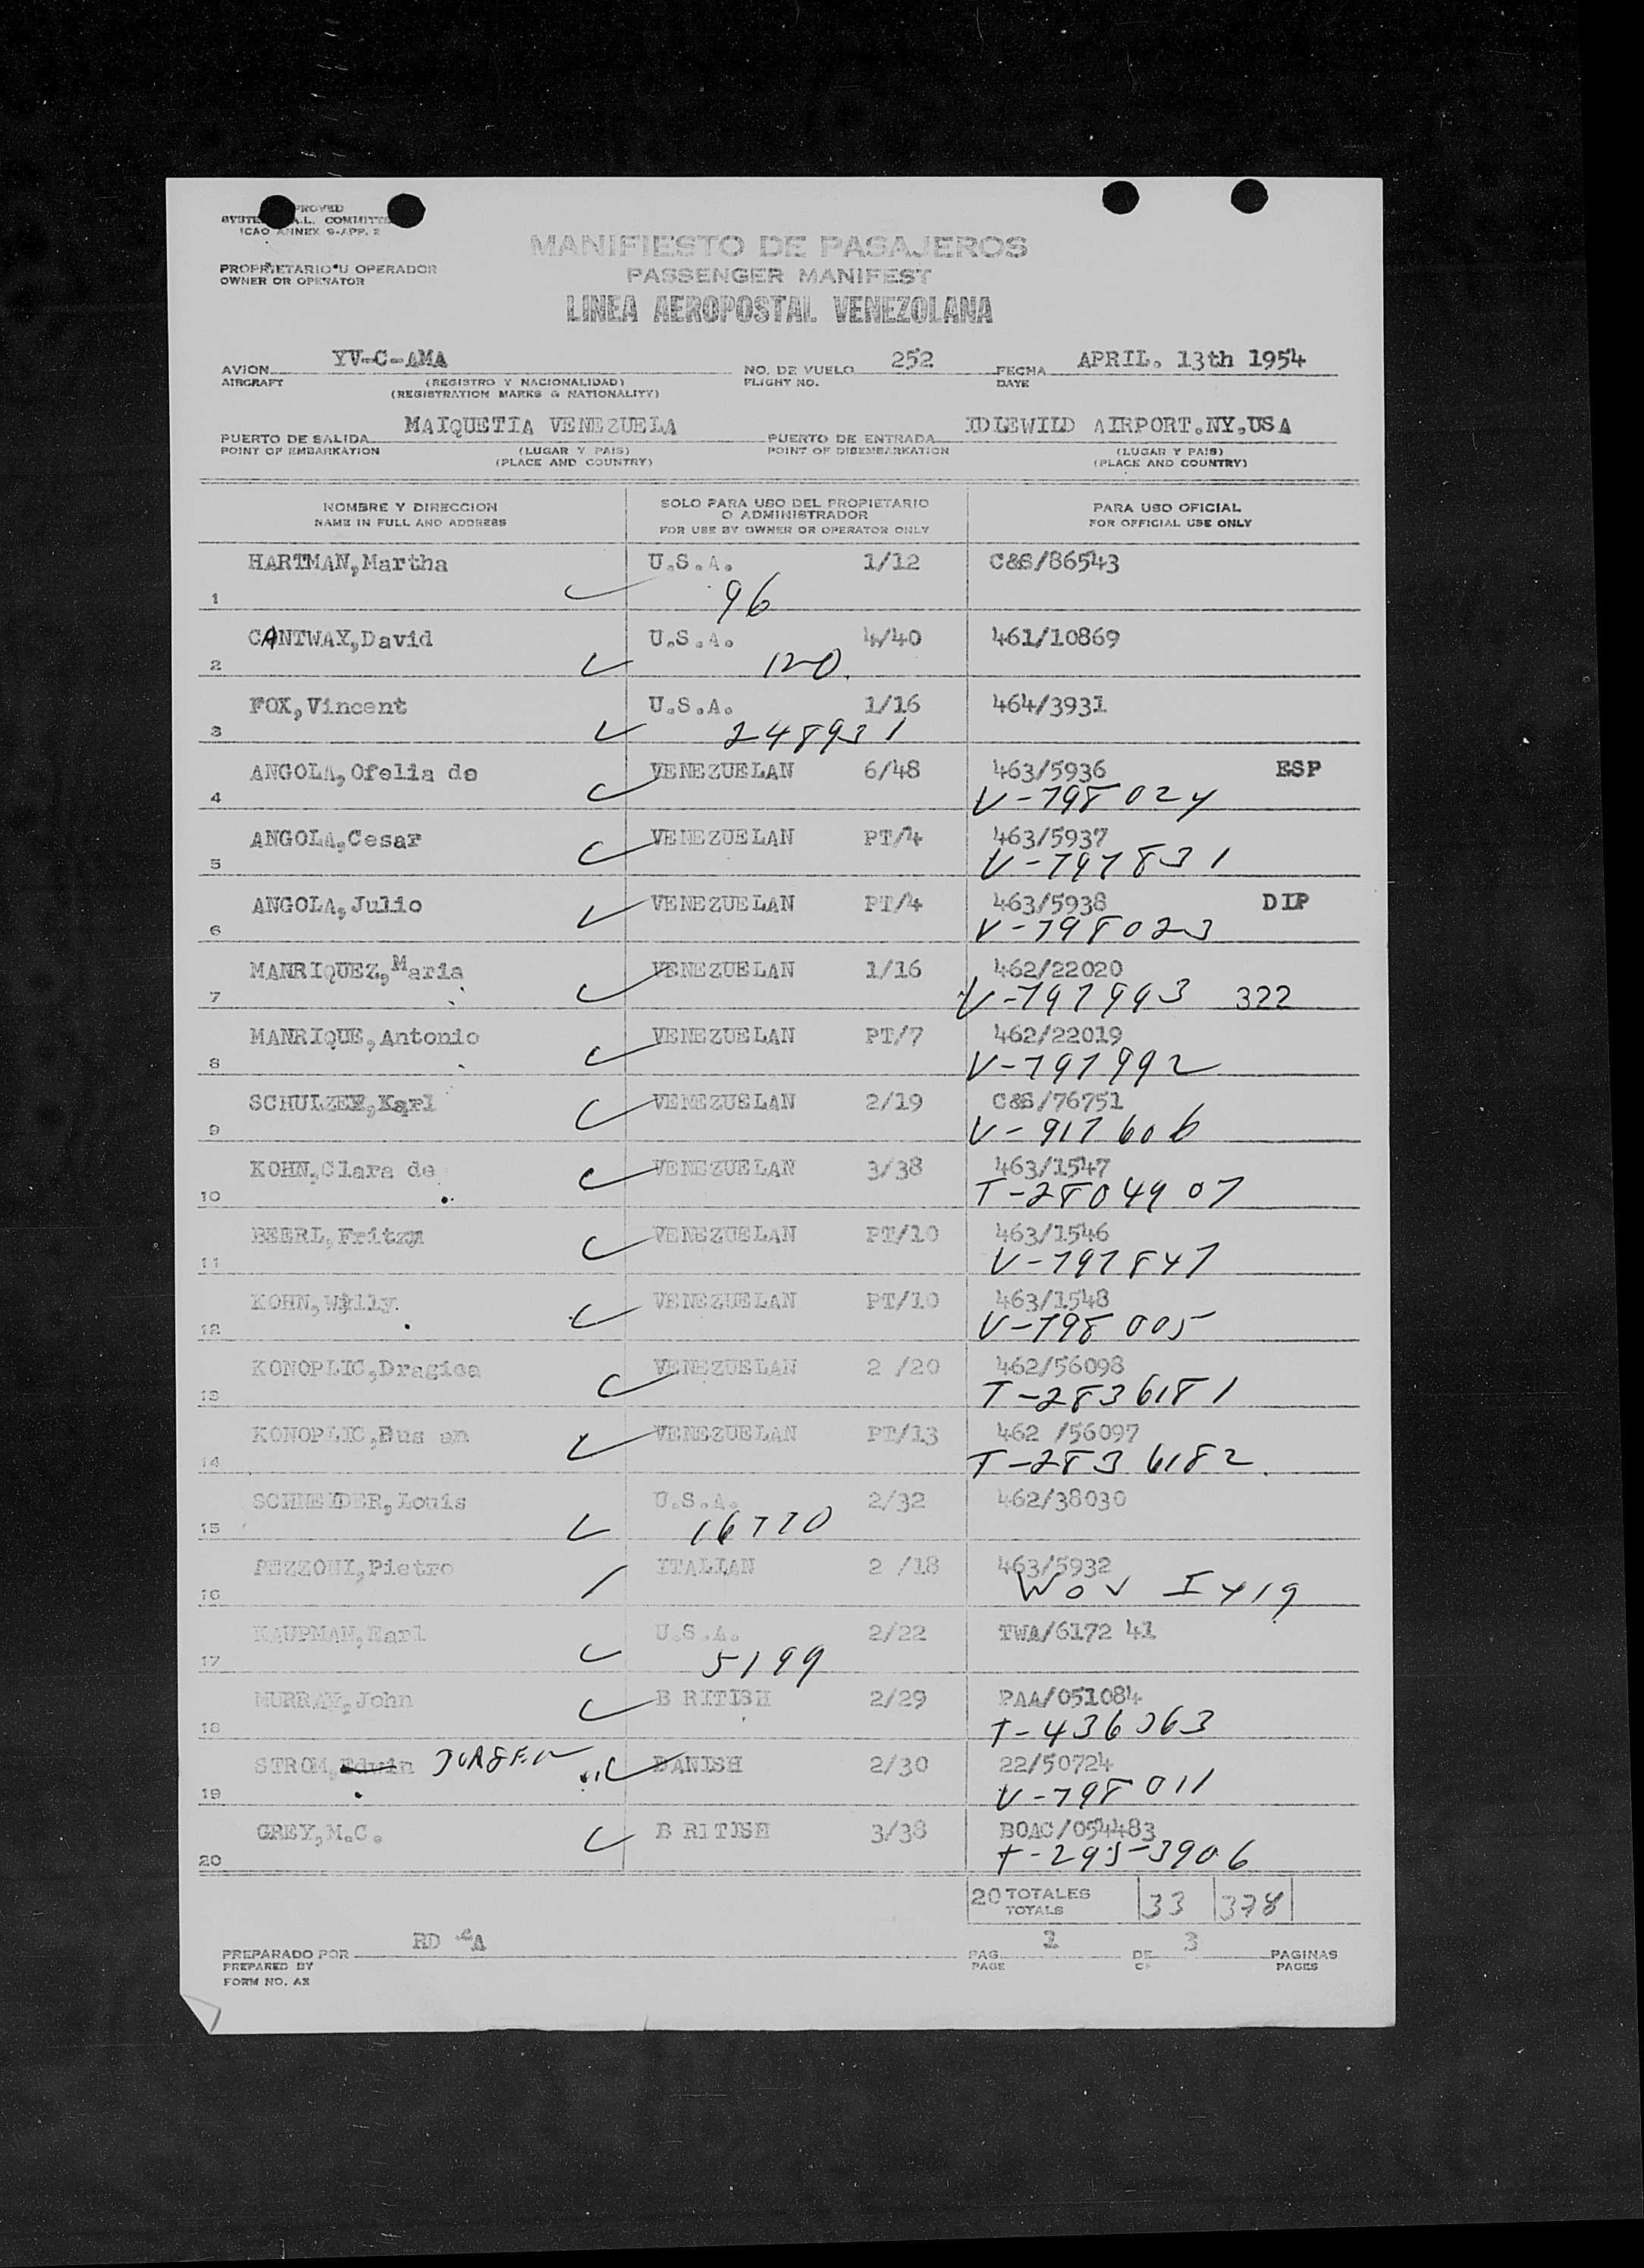 PROVED
SYSTE A.L. COMMITTE
ICAO ANNEX 9-APP. 2
MANIFIESTO DE PASAJEROS
PROPRIETARIO U OPERADOR
PASSENGER MANIFEST
OWNER OR OPERATOR
LINEA AEROPOSTAL VENEZOLANA
AVION YV-C-AMA NO. DE VUELO 252 FECHA APRIL. 13th 1954
AIRCRAFT (REGISTRO Y NACIONALIDAD) FLIGHT NO. DATE
(REGISTRATION MARKS & NATIONALITY)
PUERTO DE SALIDA MAIQUETIA VENEZUELA PUERTO DE ENTRADA IDLEWILD AIRPORT.NY.USA
POINT OF EMBARKATION (LUGAR Y PAIS) POINT OF DISEMBARKATION (LUGAR Y PAIS)
(PLACE AND COUNTRY) (PLACE AND COUNTRY)
NOMBRE Y DIRECCION SOLO PARA USO DEL PROPIETARIO PARA USO OFICIAL
O ADMINISTRADOR
NAME IN FULL AND ADDRESS FOR USE BY OWNER OR OPERATOR ONLY FOR OFFICIAL USE ONLY
HARTMAN,Martha U.S.A. 1/12 C&S/86543
1 96
CANTWAX,David U.S.A. 4/40 461/10869
2 120.
FOX,Vincent U.S.A. 1/16 464/3931
3 248931
ANGOLA,Ofelia de VENEZUELAN 6/48 463/5936 ESP
4 V-798024
ANGOLA,Cesar VENEZUELAN PT/4 463/5937
5 V-797831
ANGOLA,Julio VENEZUELAN PT/4 463/5938 DIP
6 V-798023
MANRIQUEZ,Maria VENEZUELAN 1/16 462/22020
7 V-797993 322
MANRIQUE,Antonio VENEZUELAN PT/7 462/22019
8 V-797992
SCHULZEN,Karl VENEZUELAN 2/19 C&S/76751
9 V-917606
KOHN,Clara de VENEZUELAN 3/38 463/1547
10 T-2804907
BEERL,Fritzy VENEZUELAN PT/10 463/1546
11 V-797847
KOHN,Willy VENEZUELAN PT/10 463/1548
12 V-798005
KONOPLIC,Dragica VENEZUELAN 2 /20 462/56098
13 T-2836181
KONOPLIC,Dus an VENEZUELAN PT/13 462 /56097
14 T-2836182.
SCHNEIDER,Louis U.S.A. 2/32 462/38030
15 16770
PEZZONI,Pietro ITALIAN 2 /18 463/5932
16 WOV I419
KAUPMAN,Earl U.S.A. 2/22 TWA/6172 41
17 5199
MURRAY,John B RITISH 2/29 PAA/051084
18 T-436063
STROM,Edwin JORGEN DANISH 2/30 22/50724
19 V-798011
GREY,M.C. B RITISH 3/38 BOAC/054483
20 T-2953906
20 TOTALES 33 378
TOTALS
PREPARADO POR RD PAG. 1 DE 3 PAGINAS
PREPARED BY PAGE OF PAGES
FORM NO. A3